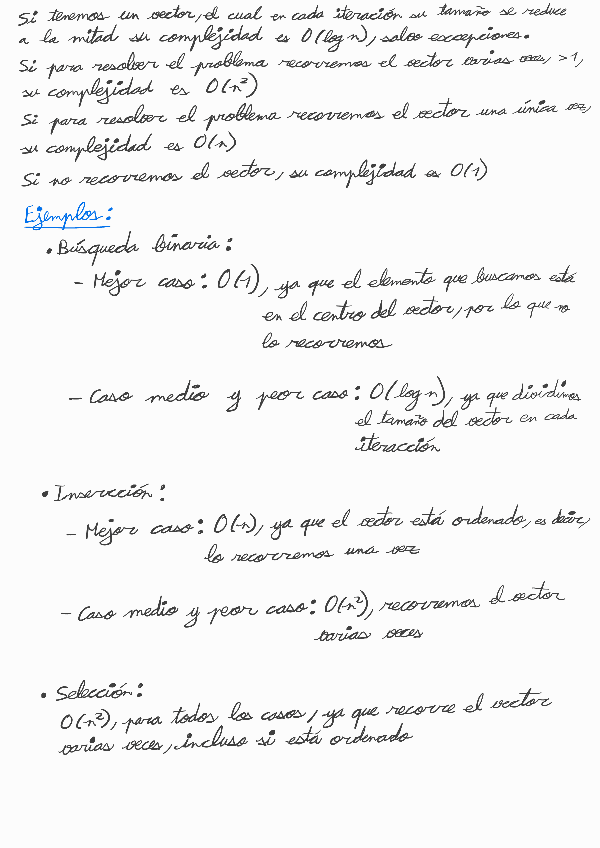 Si tenemos un vector, el cual en cada iteración su tamaño se reduce
a la mitad su complejidad es O(log n), salvo excepciones.
Si para resolver el problema recorremos el vector varias veces, >1,
su complejidad es O(n²)
Si para resolver el problema recorremos el vector una única vez,
su complejidad es O(n)
Si no recorremos el vector, su complejidad es O(1)
Ejemplos:
• Búsqueda binaria:
- Mejor caso: O(1), ya que el elemento que buscamos está
en el centro del vector, por lo que no
lo recorremos
- Caso medio y peor caso: O(log n), ya que dividimos
el tamaño del vector en cada
iteracción
• Insercción:
- Mejor caso: O(n), ya que el vector está ordenado, es decir,
lo recorremos una vez
- Caso medio y peor caso: O(n²), recorremos el vector
varias veces
• Selección:
O(n²), para todos los casos, ya que recorre el vector
varias veces, incluso si está ordenado